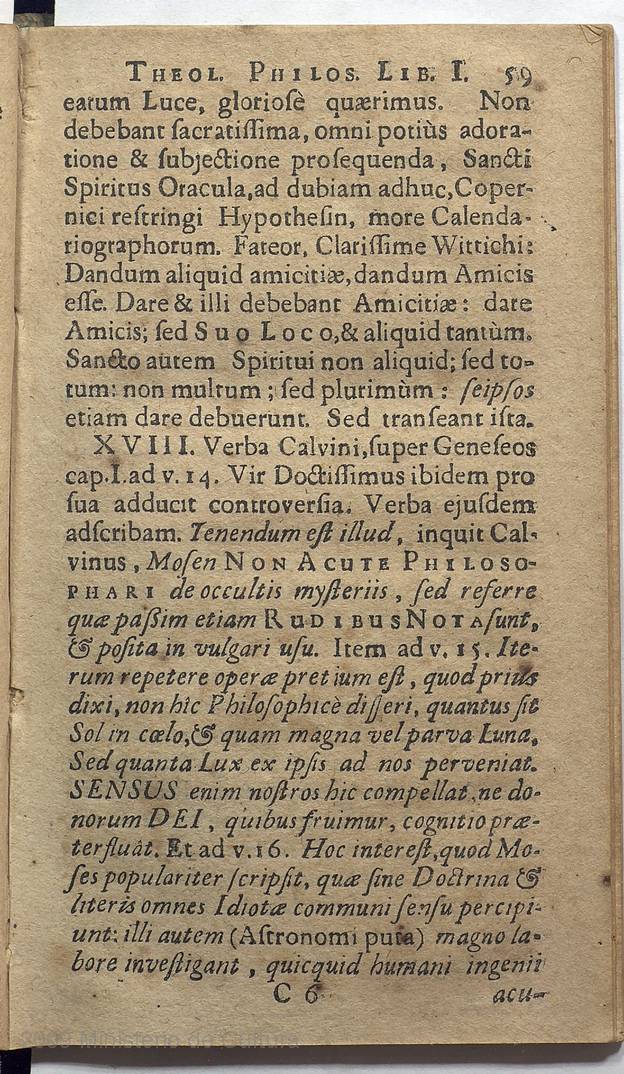 THEOL. PHILOS. LIB. I. 59
earum Luce, gloriosè quærimus. Non
debebant ſacratiſſima, omni potiùs adora-
tione & ſubjectione proſequenda, Sancti
Spiritus Oracula, ad dubiam adhuc, Coper-
nici reſtringi Hypotheſin, more Calenda-
riographorum. Fateor, Clariſſime Wittichi:
Dandum aliquid amicitiæ, dandum Amicis
eſſe. Dare & illi debebant Amicitiæ: dare
Amicis; ſed SUO LOCO, & aliquid tantùm.
Sancto autem Spiritui non aliquid; ſed to-
tum: non multum; ſed plurimùm: ſeipſos
etiam dare debuerunt. Sed tranſeant iſta.
XVIII. Verba Calvini, ſuper Geneſeos
cap. I. ad v. 14. Vir Doctiſſimus ibidem pro
ſua adducit controverſia. Verba ejuſdem
adſcribam. Tenendum eſt illud, inquit Cal-
vinus, Moſen NON ACUTE PHILOSO-
PHARI de occultis myſteriis, ſed referre
quæ paßim etiam RUDIBUS NOTA ſunt,
& poſita in vulgari uſu. Item ad v. 15. Ite-
rum repetere operæ pretium eſt, quod priùs
dixi, non hîc Philoſophicè diſſeri, quantus ſit
Sol in cœlo, & quam magna vel parva Luna,
Sed quanta Lux ex ipſis ad nos perveniat.
SENSUS enim noſtros hic compellat, ne do-
norum DEI, quibus fruimur, cognitio præ-
terfluat. Et ad v. 16. Hoc intereſt, quod Mo-
ſes populariter ſcripſit, quæ ſine Doctrina &
literis omnes Idiotæ communi ſenſu percipi-
unt: illi autem (Aſtronomi puta) magno la-
bore inveſtigant, quicquid humani ingenii
C 6 acu-